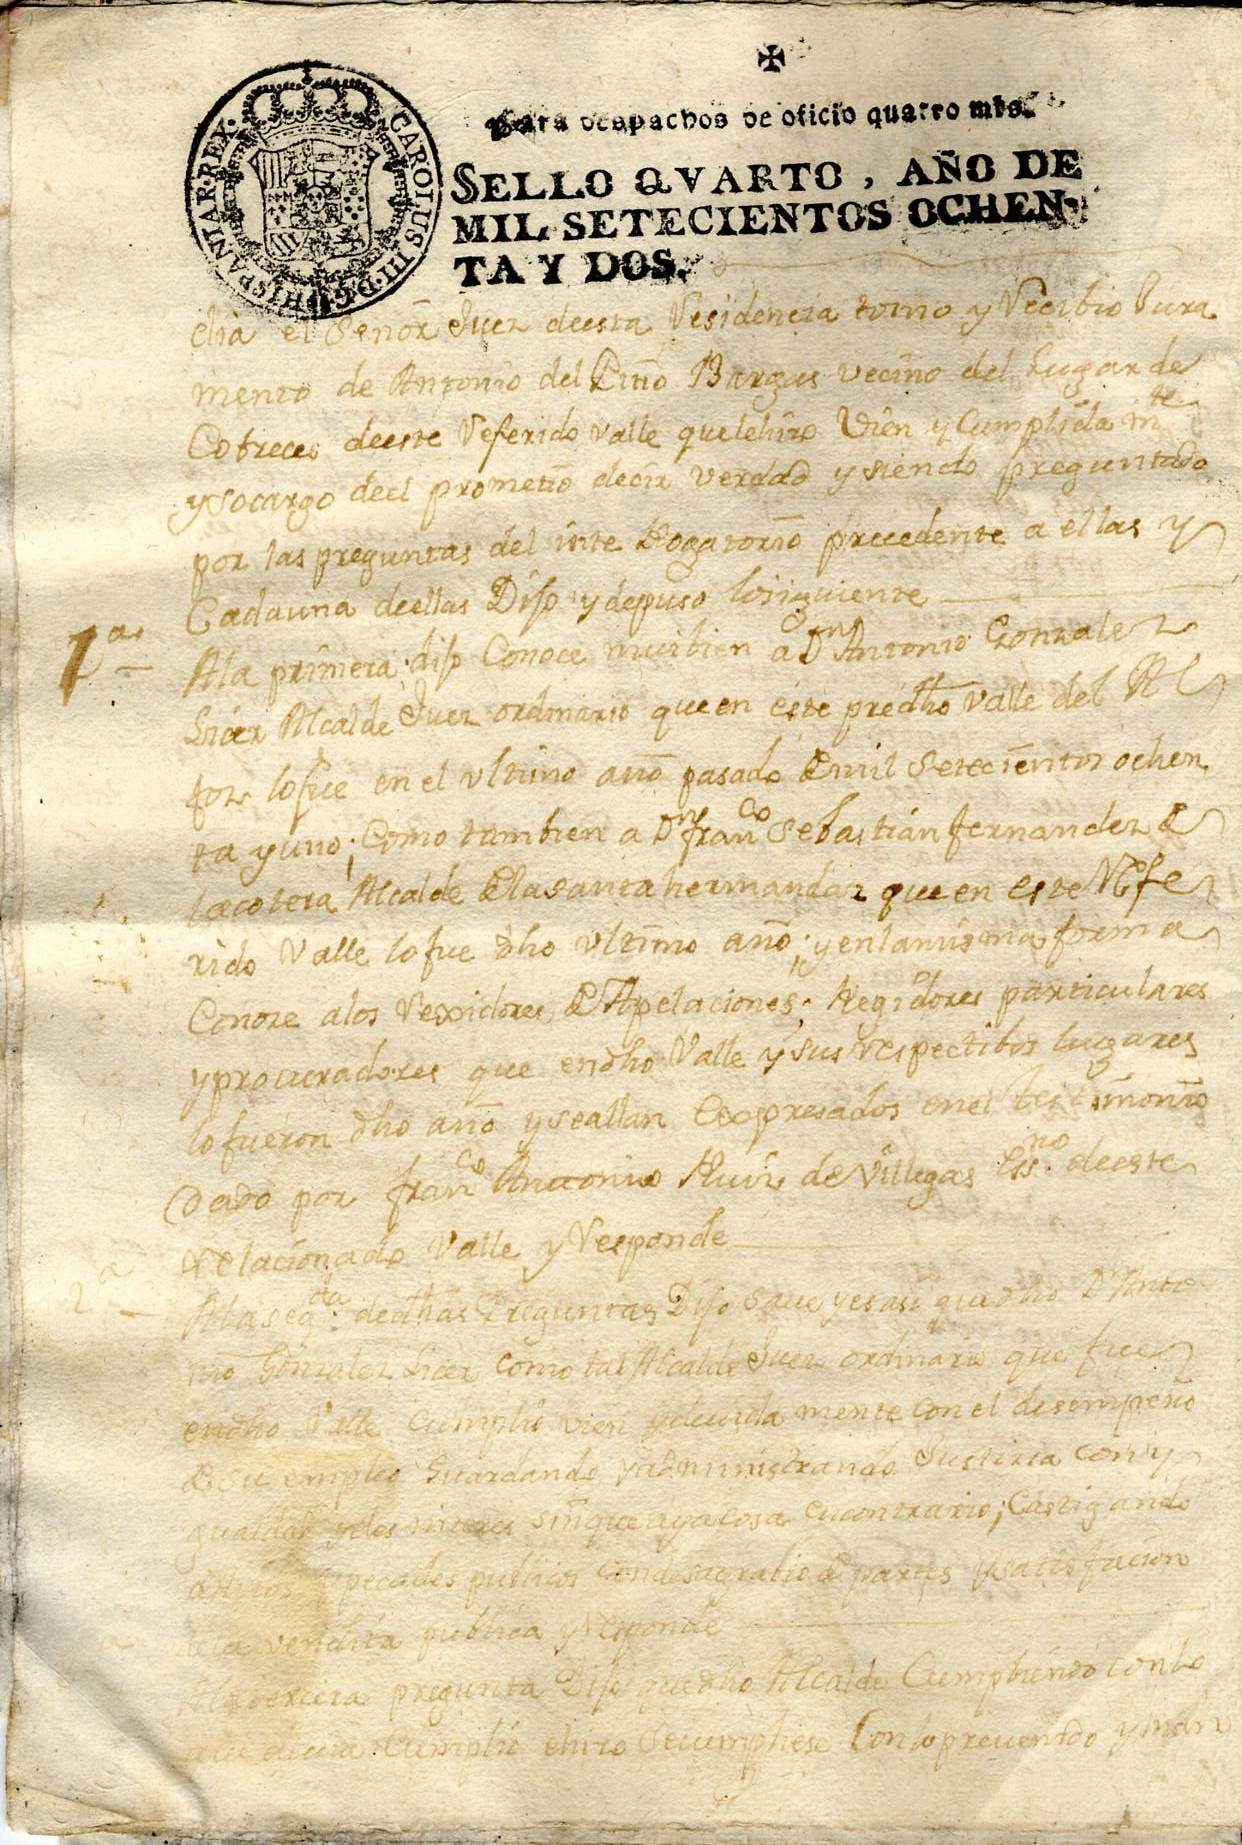 ✠
Para despachos de oficio quatro mrs.
CAROLUS III·D·G·HISPANIAR·REX·
SELLO QVARTO, AÑO DE
MIL SETECIENTOS OCHEN-
TA Y DOS.
dia el Señor Juez deesta Residencia tomo y Recibio Jura
mento de Antonio del Pino Bargas vecino del Lugar de
Cobreces deeste Referido valle quelehizo vien y Cumplida mte
y socargo deel prometio decir verdad y siendo preguntado
por las preguntas del inte Rogatorio precedente a ellas y
Cadauna deellas Dijo y depuso lo siguiente
1a
Ala primera dijo Conoce mui bien a Dn Antonio Gonzalez
Alcalde Juez ordinario queen este predho valle del Al
foz lo fue en el ultimo año pasado de mil setecientos ochen
ta y uno; Como tambien a Dn franco Sebastian fernandez de
lacotera Alcalde de la santa hermandaz que en este Refe
rido Valle lo fue dho ultimo año; y en lamisma forma
Conoze alos Rexidores de Apelaciones; Regidores particulares
y procuradores que endho Valle y sus respectibos lugares
lo fueron dho año y se allan Expresados en el testimonio
dado por franco Antonio Ruiz de Villegas Essno deeste
relacionado Valle y Responde
2a
Ala segda dedhas Preguntas Dijo save y es asi que dho Dn Anto
nio Gonzalez como tal Alcalde Juez ordinario que fue
endho Valle Cumplio vien y devida mente con el desempeño
de su empleo Guardando y administrando Justicia con y
gualdad sin que aya cosa en contrario; Castigando
pecados publicos con desagrabio de partes y satisfacion
dela vendita publica y Responde
Ala tercera pregunta Dijo que dho Alcalde Cumpliendo con lo
Cumplio e hizo se cumpliese Con lo prevenido y